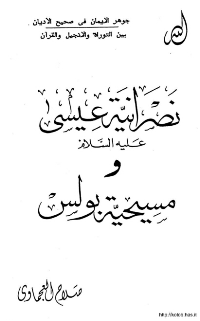 الله
جوهر الإيمان فى صحيح الأديان
بين التوراة والإنجيل والقرآن
نصرانية عيسى
عليه السلام
و
مسيحية بولس
صلاح العجماوى